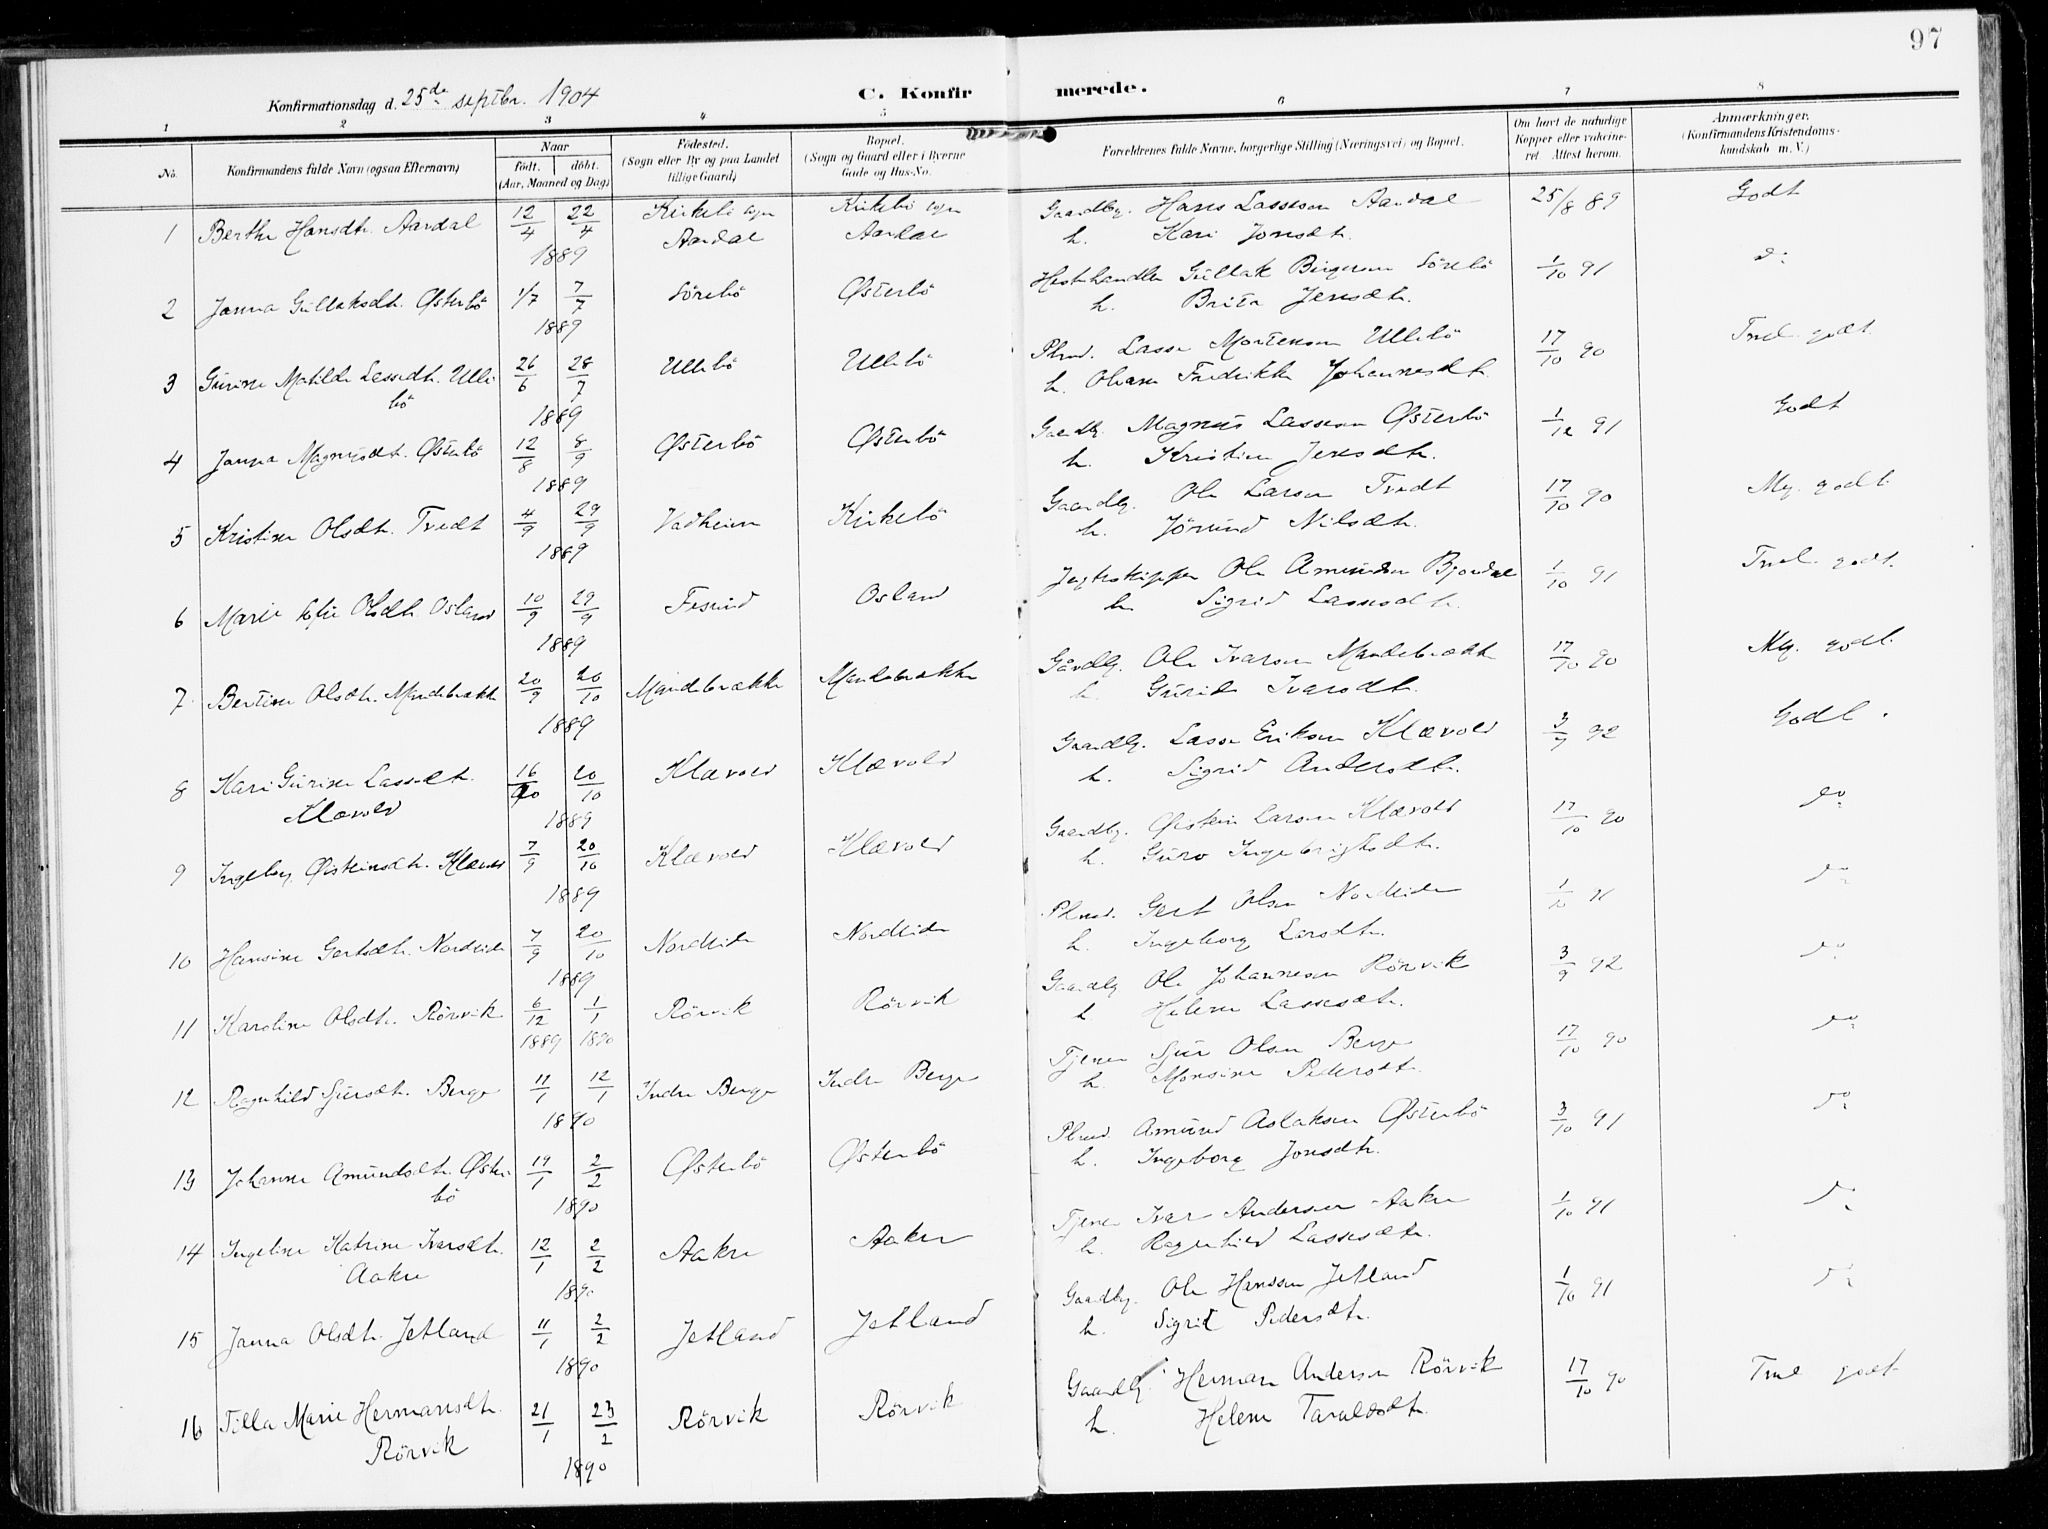 97
Konfirmationsdag d. 25de septbr. 1904
C. Konfirmerede.
1 2 3 4 5 6 7 8
No. Konfirmandens fulde Navn (ogsaa Efternavn) Naar født. døbt. (Aar, Maaned og Dag) Fødested. (Sogn eller By og paa Landet tillige Gaard) Bopæl. (Sogn og Gaard eller i Byerne Gade og Hus-No. Forældrenes fulde Navne, borgerlige Stilling (Næringsvei) og Bopæl. Om havt de naturlige Kopper eller vakcineret Attest herom. Anmærkninger. (Konfirmandens Kristendomskundskab m. V.)
1 Berthe Hansdtr. Aardal 12/4 22/4 1889 Kirkebø sogn Aardal Kirkebø sogn Aardal Gaardbg. Hans Lassesen Aardal 25/8 89 Godt
h. Kari Jonsdtr.
2 Janna Gullaksdtr. Østerbö 1/7 7/7 1889 Sörebö Østerbö Hestehandler Gullak Börgesen Sörebö 1/10 91 do
h. Brita Jensdtr.
3 Gurine Matilde Lassedtr. Ullebö 26/6 28/7 1889 Ullebö Ullebö Plmd. Lasse Mortensen Ullebö 17/10 90 Tmel. godt.
h. Oliane Fredrikke Johannesdtr.
4 Janna Magnusdtr. Østerbö 12/8 8/9 1889 Østerbö Østerbö Gaardbg. Magnus Lassesen Østerbö 1/12 91 Godt
h. Kristine Jensdtr.
5 Kristine Olsdtr. Tvedt 4/9 29/9 1889 Vadheim Kirkebö Gaardbg. Ole Larsen Tvedt 17/10 90 Mg. godt.
h. Jörund Nilsdtr.
6 Marie Olsdtr. Osland 10/9 29/9 1889 Osland Jagtskipper Ole Amundsen Bjordal 1/10 91 Tmel. godt.
h. Sigrid Lassesdtr.
7 Bertine Olsdtr. Mandebrække 20/9 20/10 1889 Mandebrække Mandebrække Gårdbg. Ole Ivarsen Mandebrække 17/10 90 Mg. godt.
h. Guride Ivarsdtr.
8 Kari Gurine Lassedtr. Klævold 16/10 20/10 1889 Klævold Klævold Gaardbg. Lasse Eriksen Klævold 3/9 92 Godt.
h. Sigrid Andersdtr.
9 Ingeborg Øisteinsdtr. Klævold 7/9 20/10 1889 Klævold Klævold Gaardbg. Øistein Larsen Klævold 17/10 90 do
h. Guro Ingebrigtsdtr.
10 Hansine Gertsdtr. Nordeide 7/9 20/10 1889 Nordeide Nordeide Plmd. Gert Olsen Nordeide 1/10 91 do
h. Ingeborg Larsdtr.
11 Karoline Olsdtr. Rörvik 6/12 1889 1/1 1890 Rörvik Rörvik Gaardbg Ole Johannesen Rörvik 3/9 92 do
h Helene Lassesdtr.
12 Ragnhild Sjursdtr. Berge 11/1 12/1 1890 Indre Berge Indre Berge Tjener Sjur Olsen Berge 17/10 90 do
h. Monsine Pedersdtr.
13 Johanne Amundsdtr. Østerbö 19/1 2/2 1890 Østerbö Østerbö Plmd. Amund Aslaksen Østerbö 3/10 91 do
h. Ingeborg Jonsdtr.
14 Ingeline Katrine Ivarsdtr. Aakre 12/1 2/2 1890 Aakre Aakre Tjener Ivar Andersen Aakre 1/10 91 do
h. Ragnhild Lassesdtr.
15 Janna Olsdtr. Jetland 11/1 2/2 1890 Jetland Jetland Gaardbg. Ole Hanssen Jetland 1/10 91 do
h. Sigrid Pedersdtr.
16 Tilla Marie Hermansdtr. Rörvik 21/1 23/2 1890 Rörvik Rörvik Gaardbg. Herman Andersen Rörvik 17/10 90 Tmel godt
h. Helene Taraldsdtr.